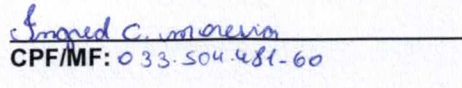 Ingred C. moreira
CPF/MF: 033.504.481-60